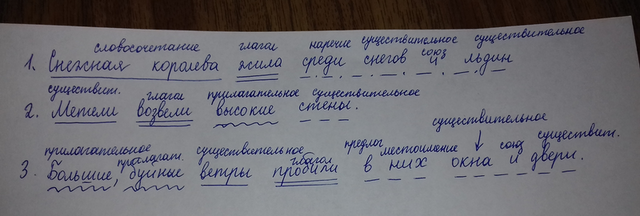 словосочетание глагол наречие существительное союз существительное
1. Снежная королева жила среди снегов и льдин
существит. глагол прилагательное существительное
2. Метели возвели высокие стены.
существительное
прилагательное прилагат. существительное глагол предлог местоимение союз существит.
3. Большие, буйные ветры пробили в них окна и двери.